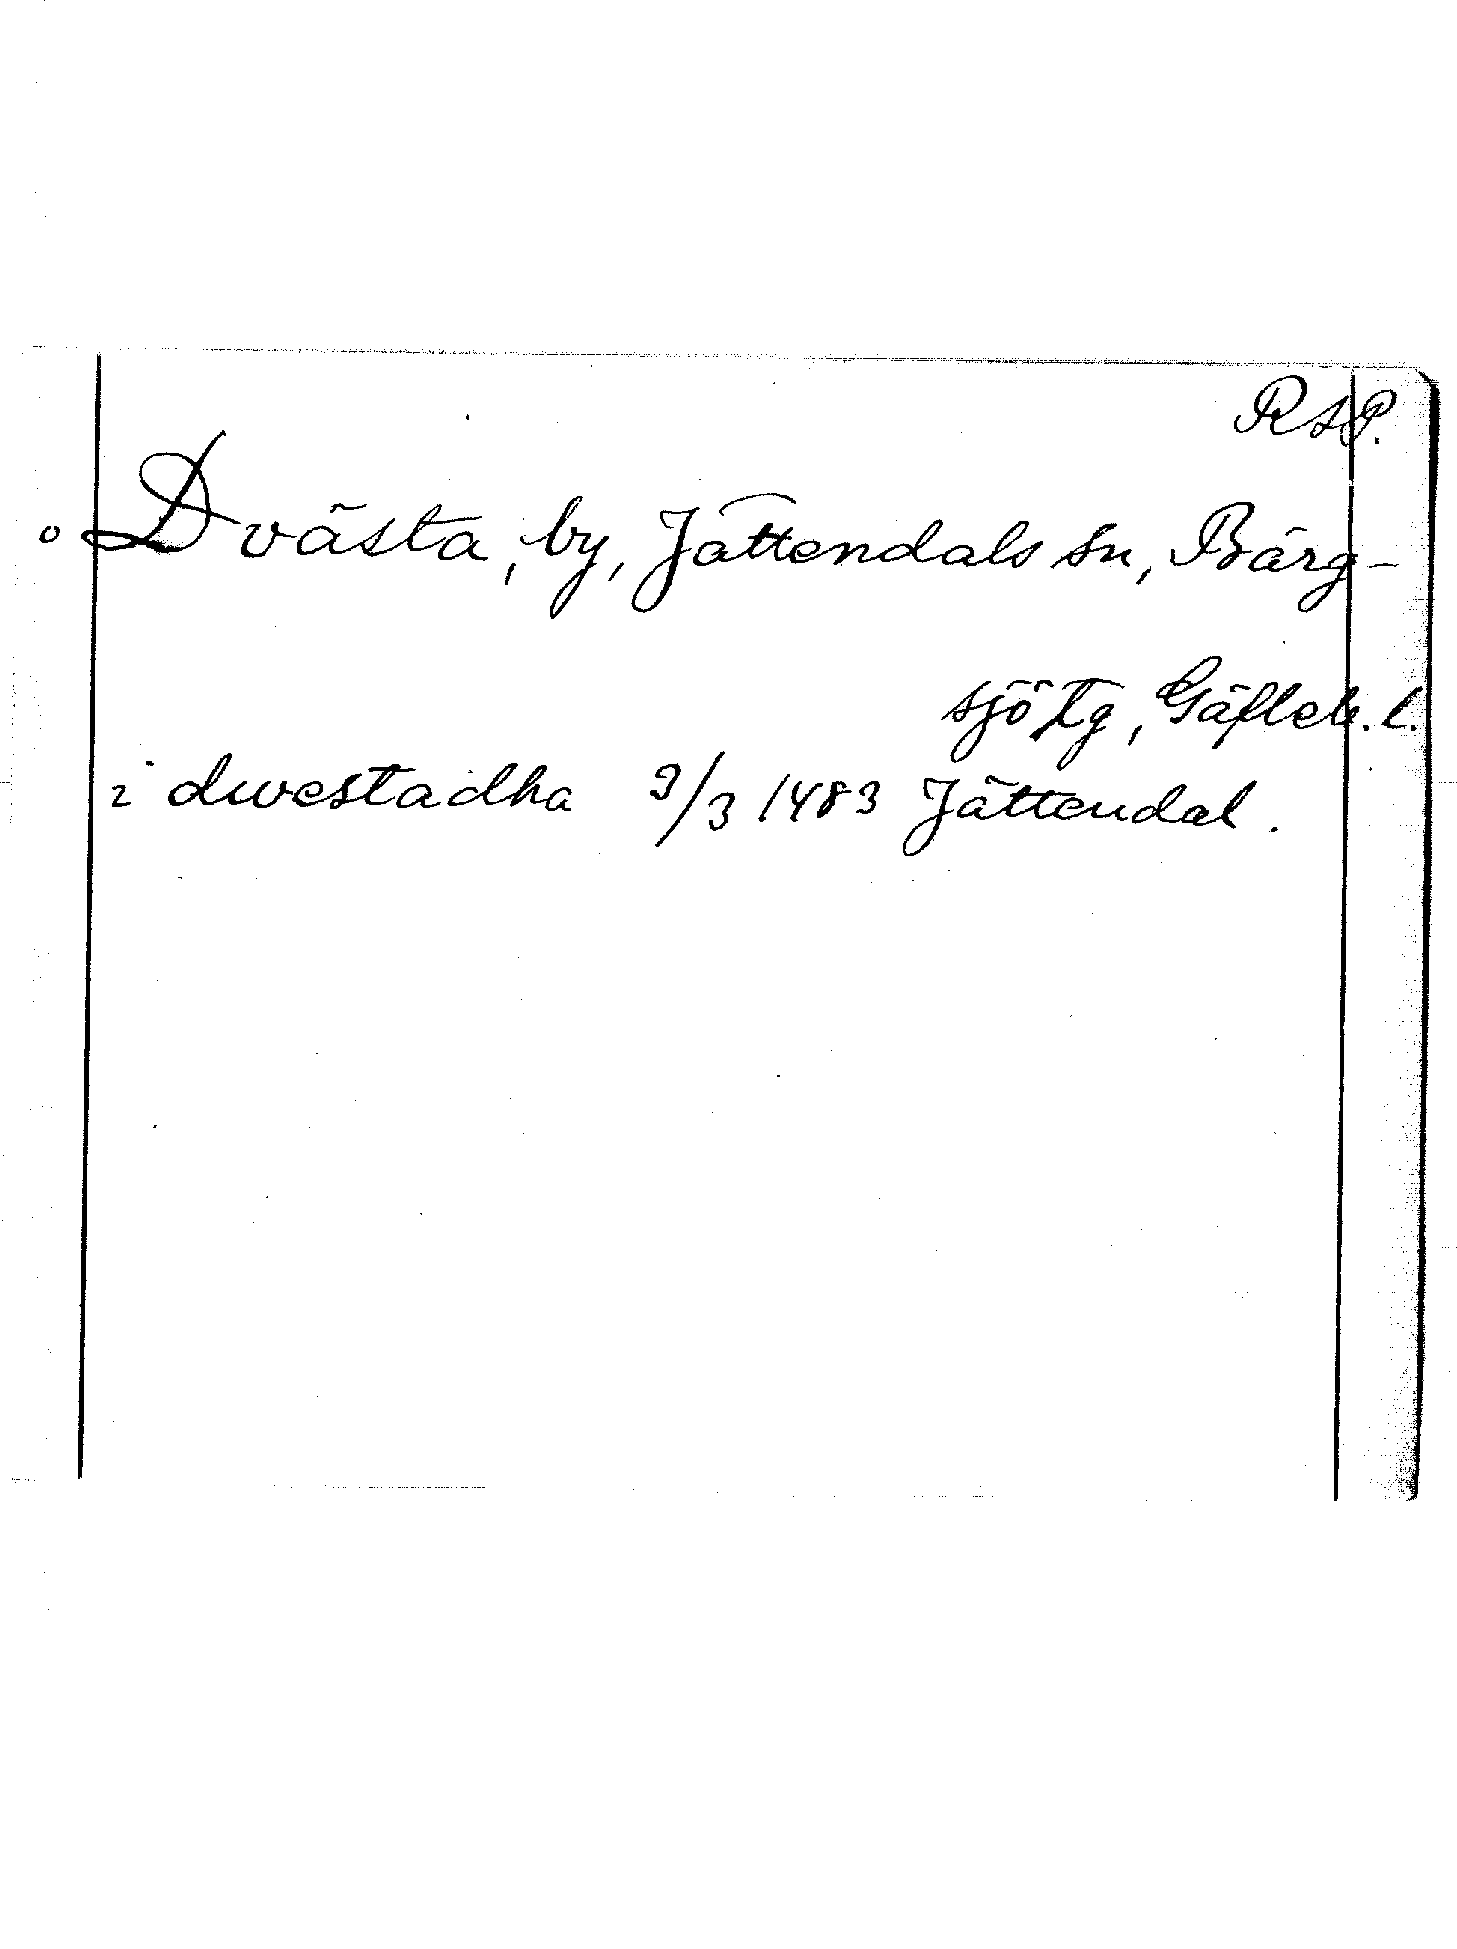 RAP.
o Dvästa, by, Jättendals sn, Bärg-
sjö tg, Gäfleb. l.
i dwestadha 9/3 1483 Jättendal.